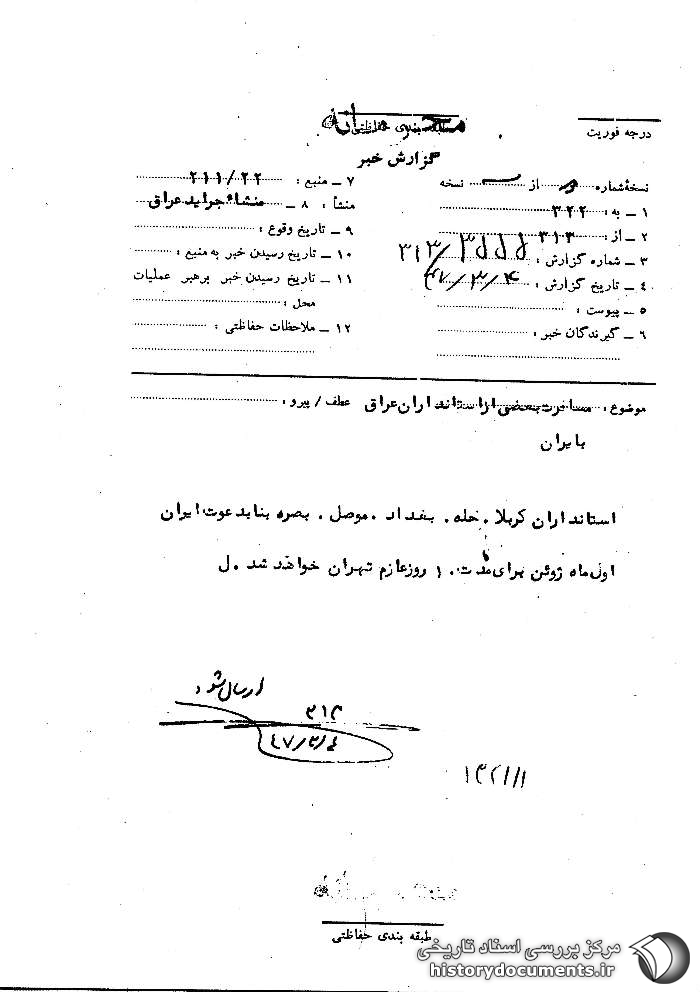 درجه فوریت
طبقه بندی حفاظتی
محرمانه
گزارش خبر
نسخهٔ شماره از نسخه
۱ ــ به : ۳۲۲
۲ ــ از : ۳۱۳
۳ ــ شماره گزارش :
۴ ــ تاریخ گزارش : ۴۷/۳/۴
۵ ــ پیوست :
۶ ــ گیرندگان خبر :
۷ ــ منبع : ۲۱۱/۲۲
منشأ : ۸ ــ منشاء جراید عراق
۹ ــ تاریخ وقوع :
۱۰ ــ تاریخ رسیدن خبر به منبع :
۱۱ ــ تاریخ رسیدن خبر برهبر عملیات
محل :
۱۲ ــ ملاحظات حفاظتی :
موضوع : مسافرت بعضی از استانداران عراق عطف / پیرو :
بایران
استانداران کربلا . حله . بغداد . موصل . بصره بنابدعوت ایران
اول ماه ژوئن برای مدت ۱۰ روز عازم تهران خواهند شد . ل
ارسال شود
۳۱۳
۴۷/۳/۴
طبقه بندی حفاظتی
مرکز بررسی اسناد تاریخی
historydocuments.ir